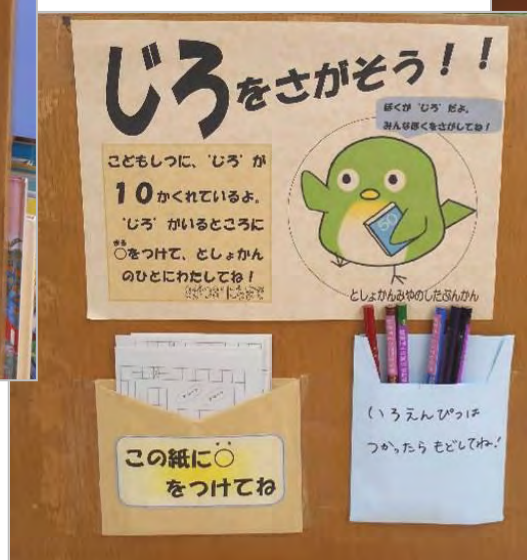 じろをさがそう！！
ぼくが ‘じろ’ だよ。
みんなぼくをさがしてね！
こどもしつに、‘じろ’ が
10かくれているよ。
‘じろ’ がいるところに
○をつけて、としょかん
のひとにわたしてね！
としょかんみやのしたぶんかん
この紙に○
をつけてね
いろえんぴつは
つかったら もどしてね！